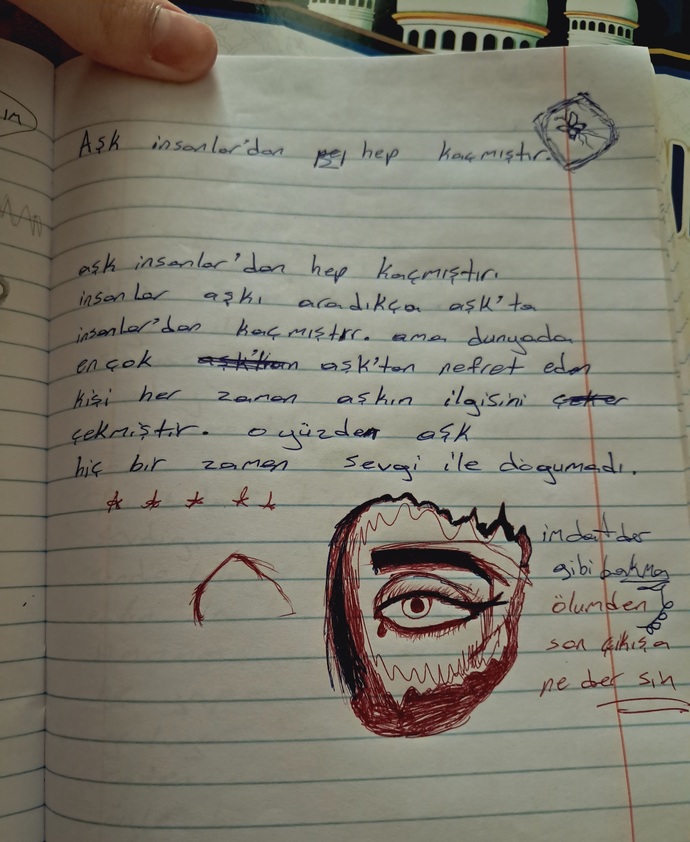 Aşk insanlar'dan hep kaçmıştır.
aşk insanlar'dan hep kaçmıştır.
insanlar aşkı aradıkça aşk'ta
insanlar'dan kaçmıştır. ama dunyada
en çok aşk'tan nefret eden
kişi her zaman aşkın ilgisini çeker
çekmiştir. o yüzden aşk
hiç bir zaman sevgi ile doğumadı.
imdat der
gibi bakma
ölumden
son çıkışa
ne der sin